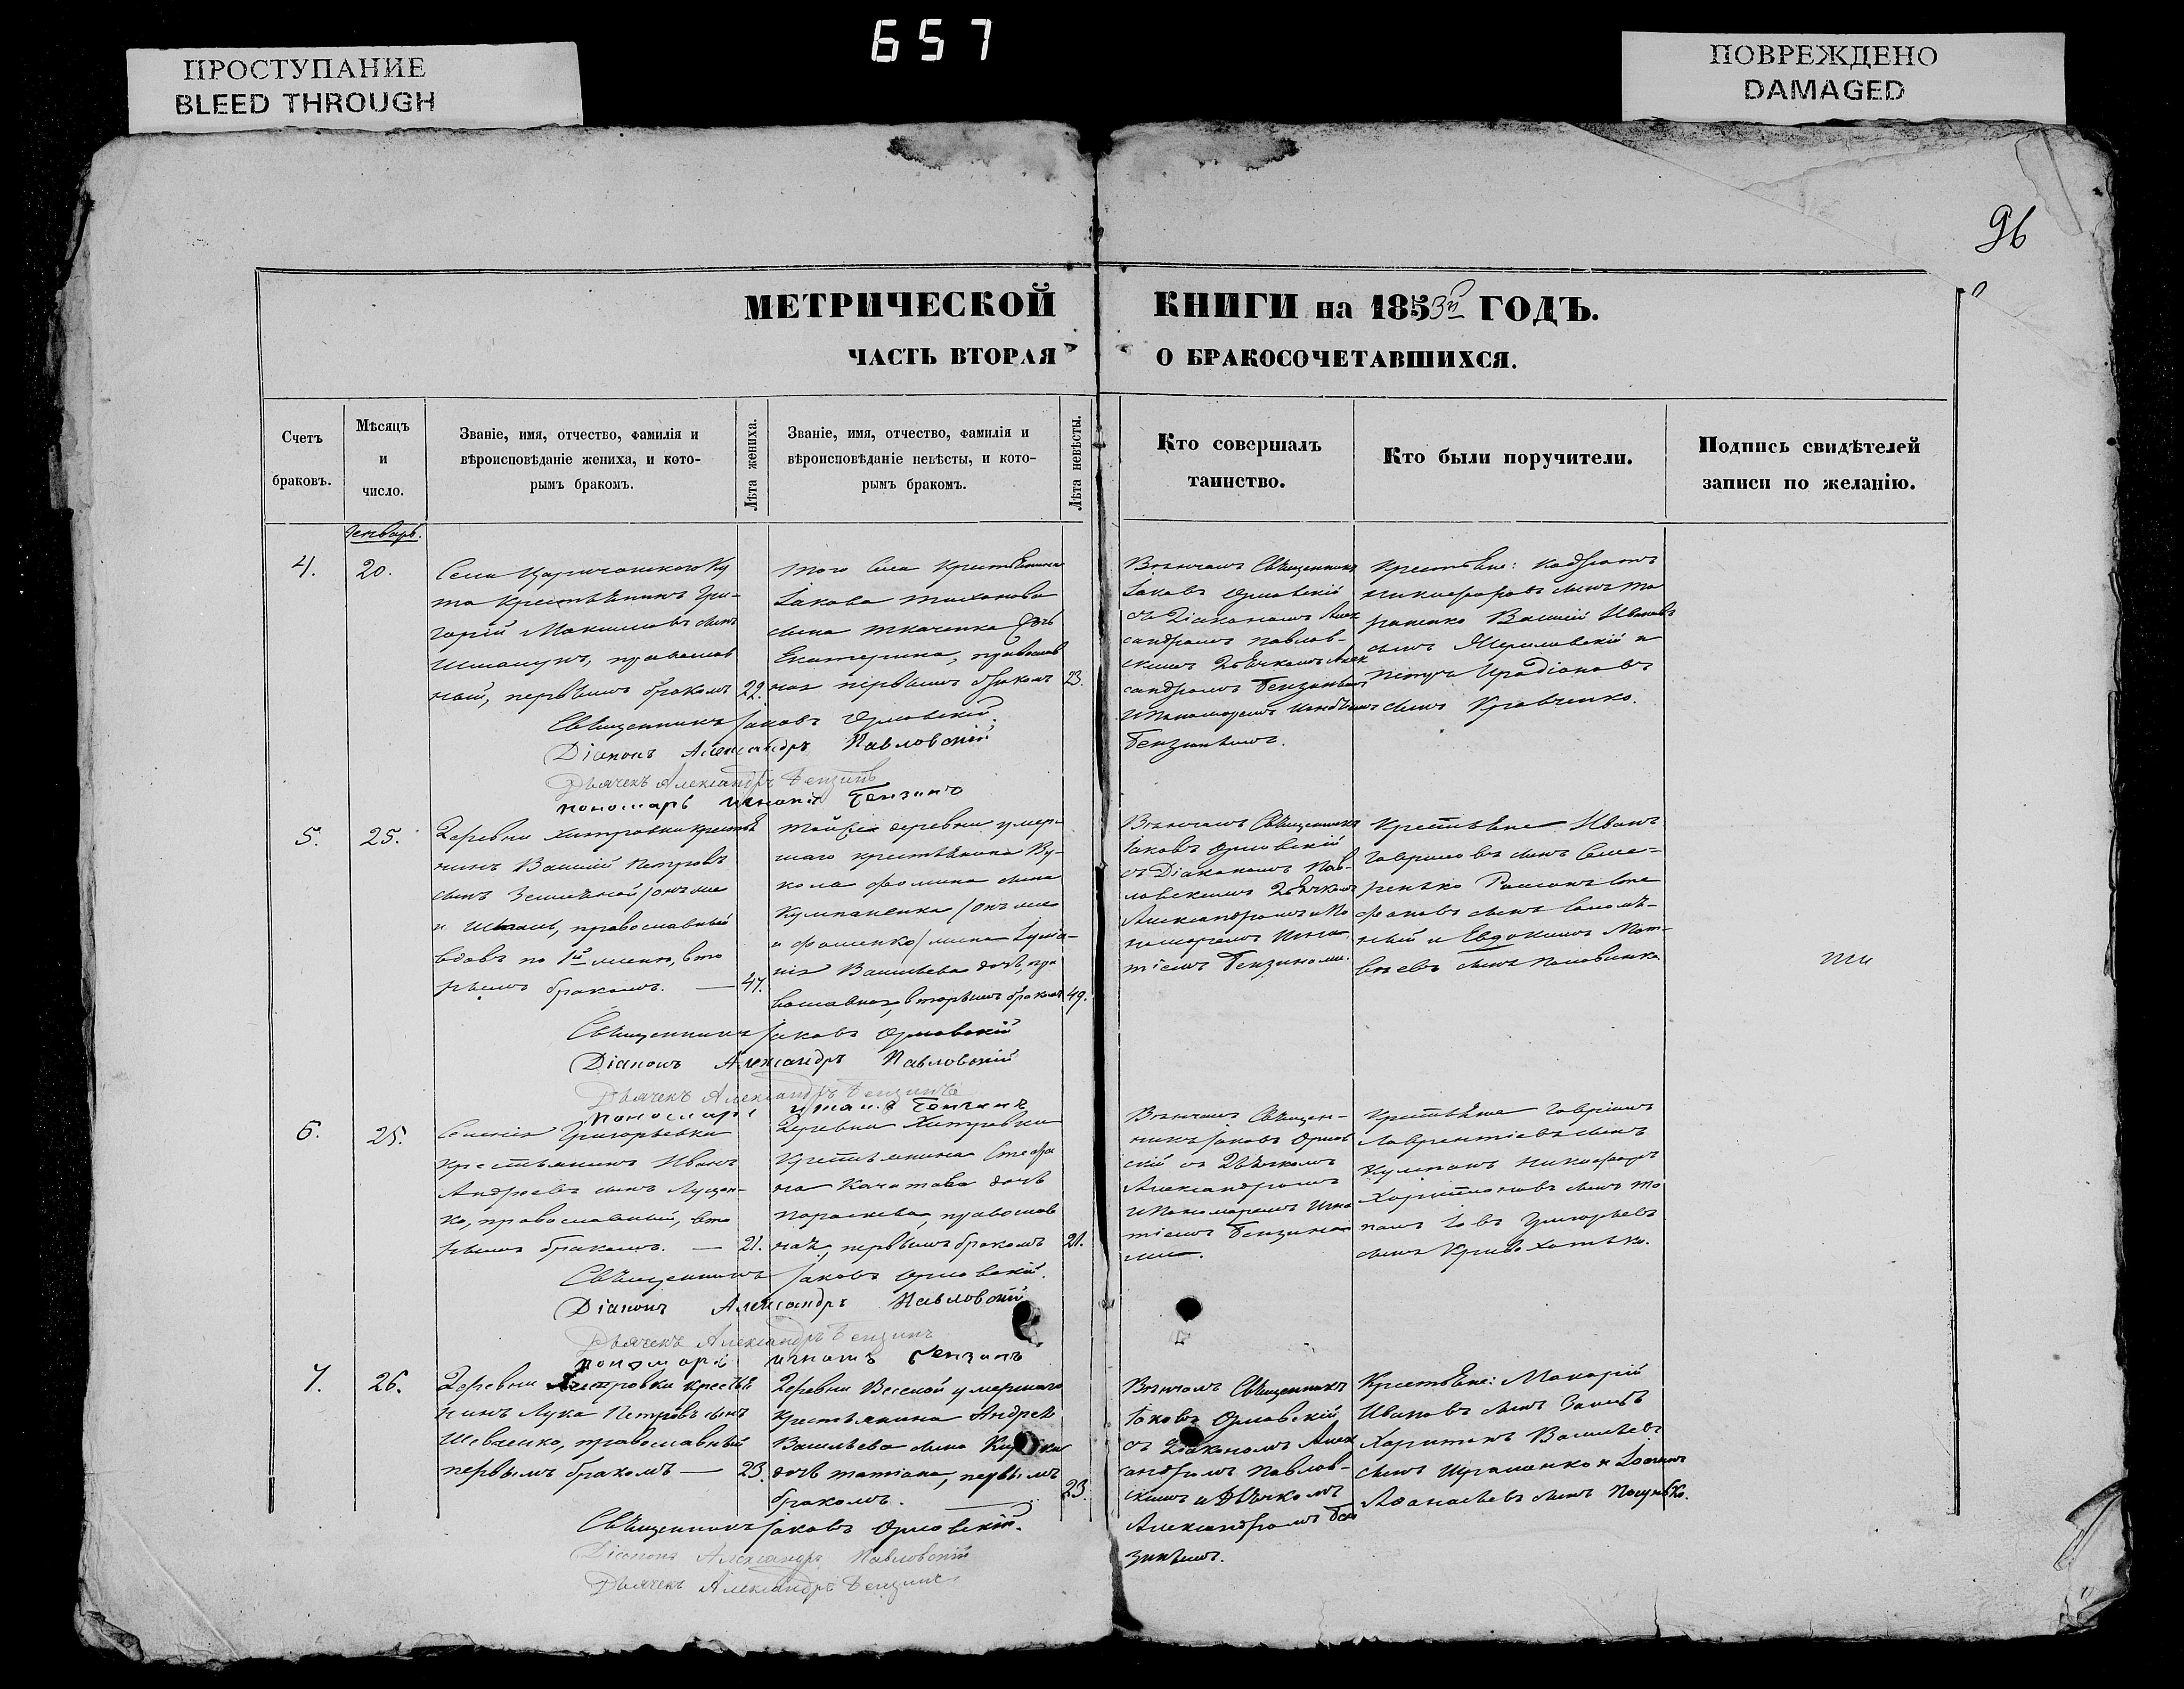 657
ПРОСТУПАНИЕ
BLEED THROUGH
ПОВРЕЖДЕНО
DAMAGED
96
МЕТРИЧЕСКОЙ КНИГИ на 1853й ГОДЪ.
ЧАСТЬ ВТОРАЯ О БРАКОСОЧЕТАВШИХСЯ.
Счетъ
браковъ.
Мѣсяцъ
и
число.
Званіе, имя, отчество, фамилія и
вѣроисповѣданіе жениха, и кото-
рымъ бракомъ.
Лѣта жениха.
Званіе, имя, отчество, фамилія и
вѣроисповѣданіе невѣсты, и кото-
рымъ бракомъ.
Лѣта невѣсты.
Кто совершалъ
таинство.
Кто были поручители.
Подпись свидѣтелей
записи по желанію.
Генварь.
4.
20.
Села Царичанского Ку
та крестьянинъ Гри-
горій Максимовъ сынъ
православ
ный, первымъ бракомъ
22.
того села крестьянина
Іакова Тихонова
сына Ткаченка дочь
Екатерина, православ
ная первымъ бракомъ
23.
Вѣнчалъ Священникъ
Іаковъ Орловскій
съ Діакономъ Алек
сандромъ Павлов-
скимъ Дьячкомъ Алек
сандромъ Бензинымъ
и Пономаремъ
Бензинымъ.
Крестьяне: Кодратъ
Никифоровъ сынъ
Василій Ивановъ
сынъ и
Петръ Иродіоновъ
сынъ Кравченко.
Священникъ Іаковъ Орловскій.
Діаконъ Александръ Павловскій
Дьячекъ Александръ Бензинъ
пономарь Игнатій Бензинъ
5.
25.
Деревни Хитровки крестья
нинъ Василій Петровъ
сынъ Земляной /онъ же
и православный
вдовъ по 1й женѣ, вто
рымъ бракомъ. —
47.
той же деревни умер-
шаго крестьянина Ву-
кола Фомина сына
Кумпаненка /онъ же
и Фоменко/ жена
Васильева дочь, пра
вославная, вторымъ бракомъ
49.
Вѣнчалъ Священникъ
Іаковъ Орловскій
съ Діакономъ Пав-
ловскимъ Дьячкомъ
Александромъ и По
номаремъ Игна
тіемъ Бензиными.
Крестьяне Иванъ
Гавриловъ сынъ Семе-
ренько Романъ Сте
фановъ сынъ
и Евдокимъ Мат-
вѣевъ сынъ Половинка
Священникъ Іаковъ Орловскій
Діаконъ Александръ Павловскій
Дьячекъ Александръ Бензинъ
пономарь Игнатій Бензинъ
6.
25.
Селенія Григорьевки
крестьянинъ Иванъ
Андреевъ сынъ Луцен-
ко, православный, вто
рымъ бракомъ. —
21.
Деревни Хитровки
крестьянина Стефа
на дочь
Параскева, православ
ная, первымъ бракомъ
21.
Вѣнчалъ Священ-
никъ Іаковъ Орлов
скій съ Дьячкомъ
Александромъ
и Пономаремъ Игна
тіемъ Бензины
ми.
Крестьяне Гавріилъ
Лаврентіевъ сынъ
Кумпанъ Никифоръ
Харитоновъ сынъ
Іовъ Григорьевъ
сынъ
Священникъ Іаковъ Орловскій.
Діаконъ Александръ Павловскій
Дьячекъ Александръ Бензинъ
пономарь Игнатій Бензинъ
7.
26.
Деревни Хитровки крестья
нинъ Лука Петровъ сынъ
Шевченко, православный
первымъ бракомъ —
23.
Деревни Веселой умершаго
крестьянина Андрея
Васильева сына
дочь Татіана, первымъ
бракомъ.
23.
Вѣнчалъ Священникъ
Іаковъ Орловскій
съ Діакономъ Алек
сандромъ Павлов-
скимъ и Дьячкомъ
Александромъ Бен
зинымъ.
Крестьяне: Макарій
Ивановъ сынъ
Харитонъ Васильевъ
сынъ и Іоаннъ
Аѳанасьевъ сынъ
Священникъ Іаковъ Орловскій.
Діаконъ Александръ Павловскій
Дьячекъ Александръ Бензинъ